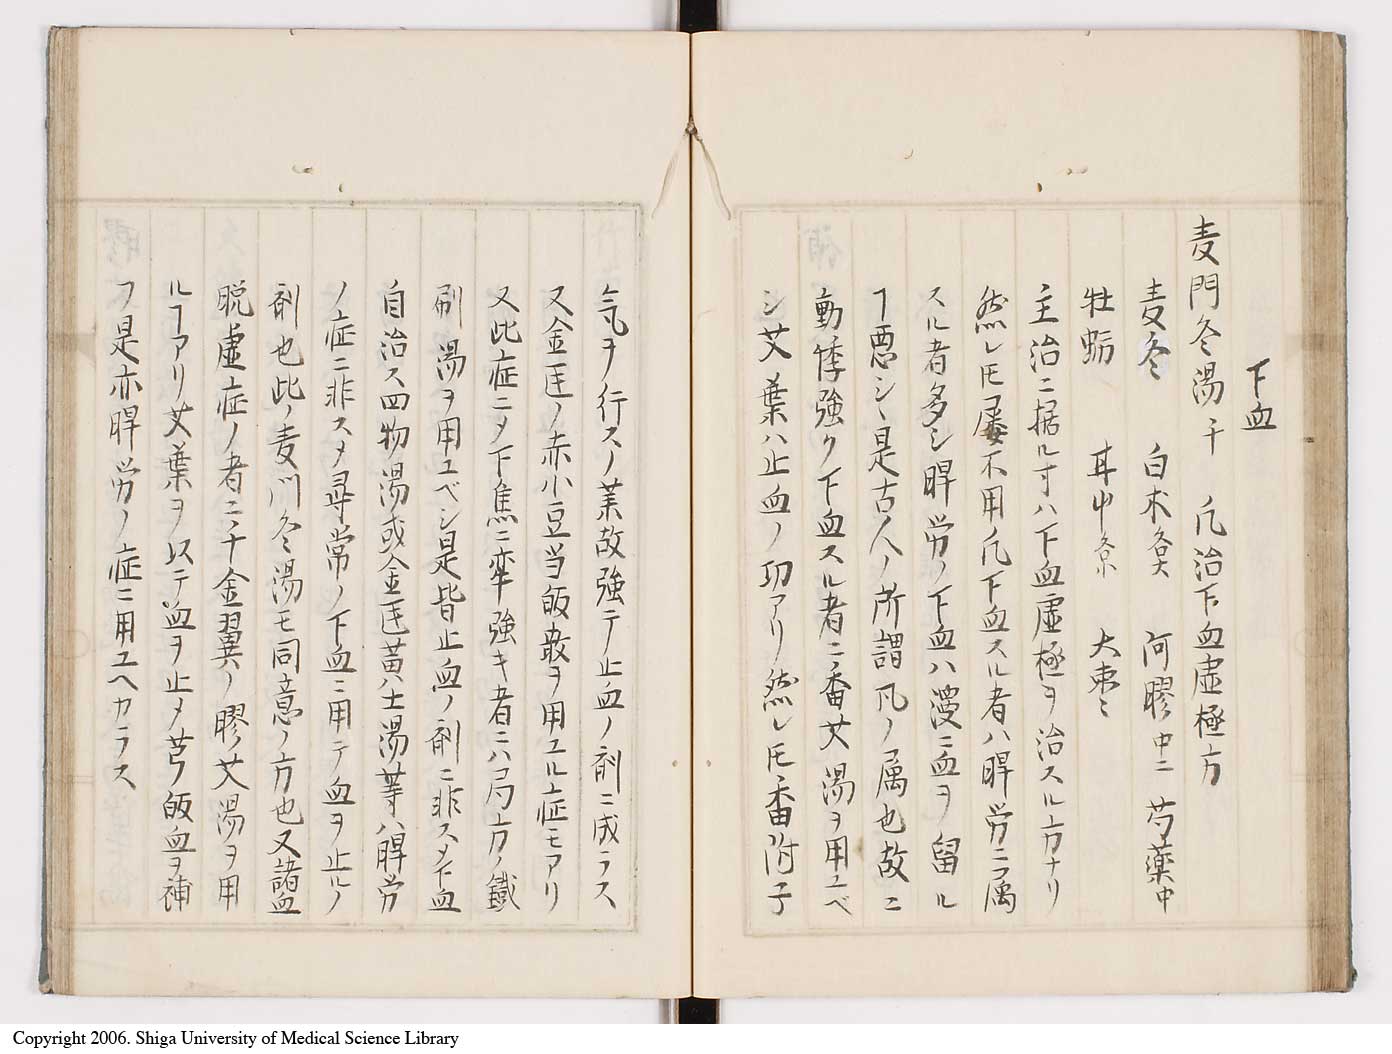 下血
麦門冬湯千 凡治下血虚極方
麦冬 白朮各大 阿膠中二 芍薬中
牡蛎 耳中各小 大棗ミ
主治ニ据ル寸ハ下血虚極ヲ治スル方ナリ
然レ𪜈屡不用凡下血スル者ハ脾労ニ属
スル者多シ脾労ノ下血ハ漫ニ血ヲ留ル
ヿ悪シヽ是古人ノ所謂凡ノ属也故ニ
動悸強ク下血スル者ニ番艾湯ヲ用ユベ
シ艾葉ハ止血ノ功アリ然レ𪜈番附子
気ヲ行スノ薬故強テ止血ノ剤ニ成ラス
又金匡ノ赤小豆当皈散ヲ用ユル症モアリ
又此症ニメ下焦ニ牽強キ者ニハ局方ノ鐵
刷湯ヲ用ユベシ是皆止血ノ剤ニ非スメ下血
自治ス四物湯或金匡黄土湯等ハ脾労
ノ症ニ非スメ尋常ノ下血ニ用テ血ヲ止ルノ
剤也此ノ麦門冬湯モ同意ノ方也又諸血
脱虚症ノ者ニ千金翼ノ膠艾湯ヲ用
ルヿアリ艾葉ヲ以テ血ヲ止メ芎皈血ヲ補
フ是亦脾労ノ症ニ用ユヘカラス
Copyright 2006. Shiga University of Medical Science Library